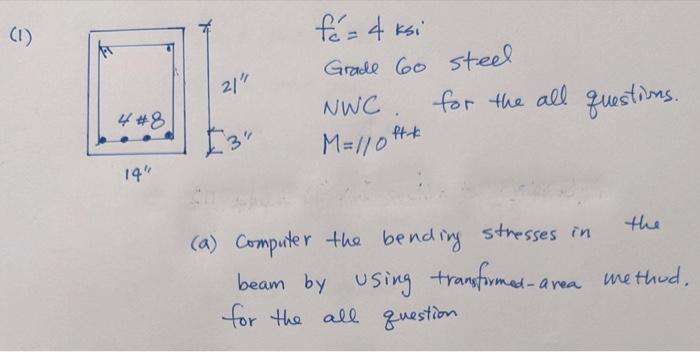 (1)
f'c = 4 ksi
Grade 60 steel
21"
NWC. for the all questions.
4 #8
3"
M=110 ft-k
14"
(a) Computer the bending stresses in the
beam by using transformed-area method.
for the all question